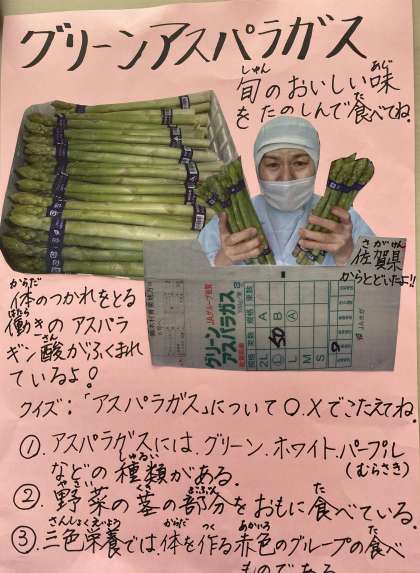 グリーンアスパラガス
旬のおいしい味
しゅん
あじ
をたのしんで食べてね。
た
佐賀県
さがけん
からとどいたよ!!
グリーン
アスパラガス
JAグループ佐賀
2L
L
M
S
50
体のつかれをとる
からだ
働きのアスパラ
はたら
ギン酸がふくまれ
さん
ているよ!
クイズ:「アスパラガス」について〇.×でこたえてね。
①.アスパラガスには.グリーン.ホワイト.パープル
などの種類がある.
しゅるい
(むらさき)
②.野菜の茎の部分をおもに食べている
やさい
くき
ぶぶん
た
③.三色栄養では体を作る赤色のグループの食べ
さんしょくえいよう
からだ
つく
あかいろ
た
ものである